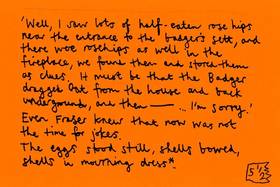 'Well, I saw lots of half-eaten rose hips
near the entrance to the badger's sett, and
there were rosehips as well in the
fireplace, we found them and stored them
as clues. It must be that the Badger
dragged Oat from the house and back
underground, and then —— ... I'm sorry.'
Even Fraser knew that now was not
the time for jokes.
The eggs stood still, shells bowed,
shells in mourning dress*.